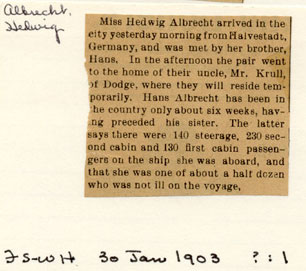 Albrecht,
Hedwig
Miss Hedwig Albrecht arrived in the
city yesterday morning from Halvestadt,
Germany, and was met by her brother,
Hans. In the afternoon the pair went
to the home of their uncle, Mr. Krull,
of Dodge, where they will reside tem-
porarily. Hans Albrecht has been in
the country only about six weeks, hav-
ing preceded his sister. The latter
says there were 140 steerage, 230 sec-
ond cabin and 130 first cabin passen-
gers on the ship she was aboard, and
that she was one of about a half dozen
who was not ill on the voyage,
FS-WH 30 Jan 1903 ? : 1